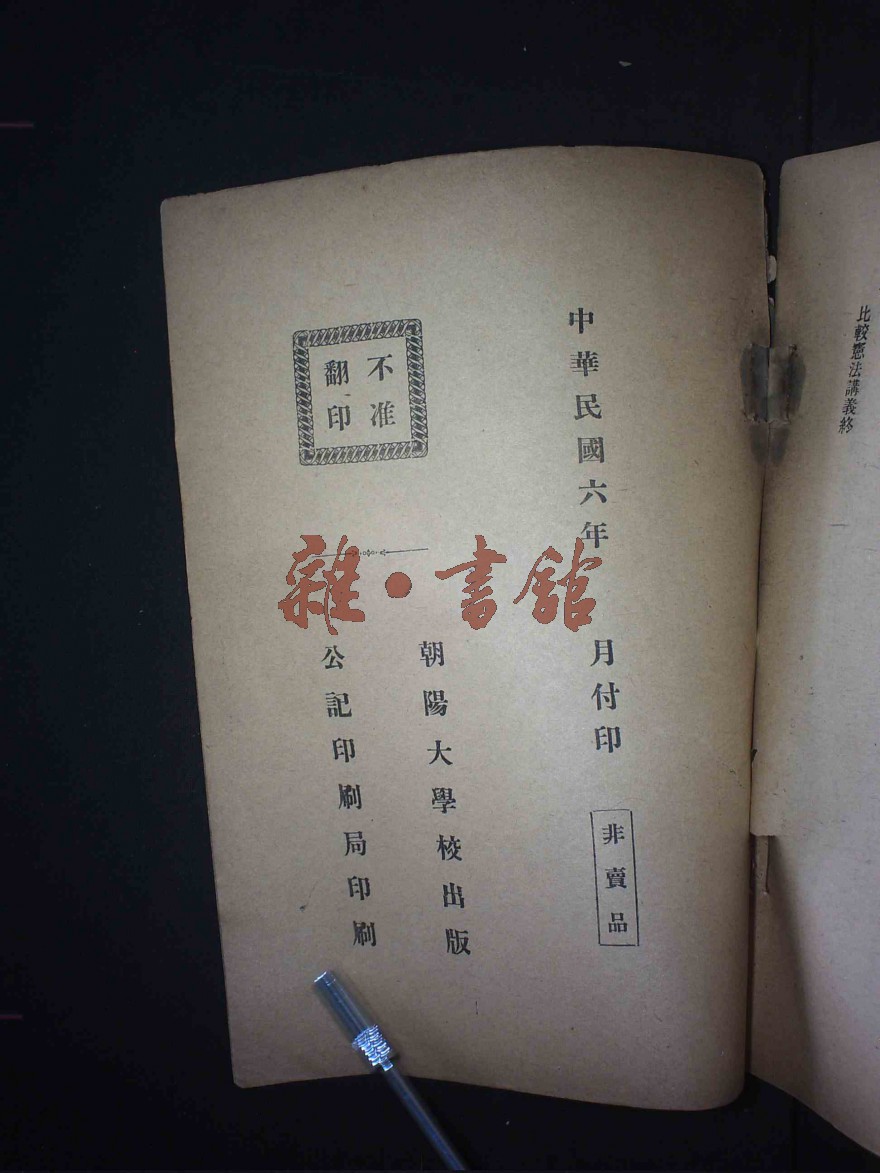 比較憲法講義終
中華民國六年　月付印
非賣品
不准
翻印
朝陽大學校出版
公記印刷局印刷
雜·書館